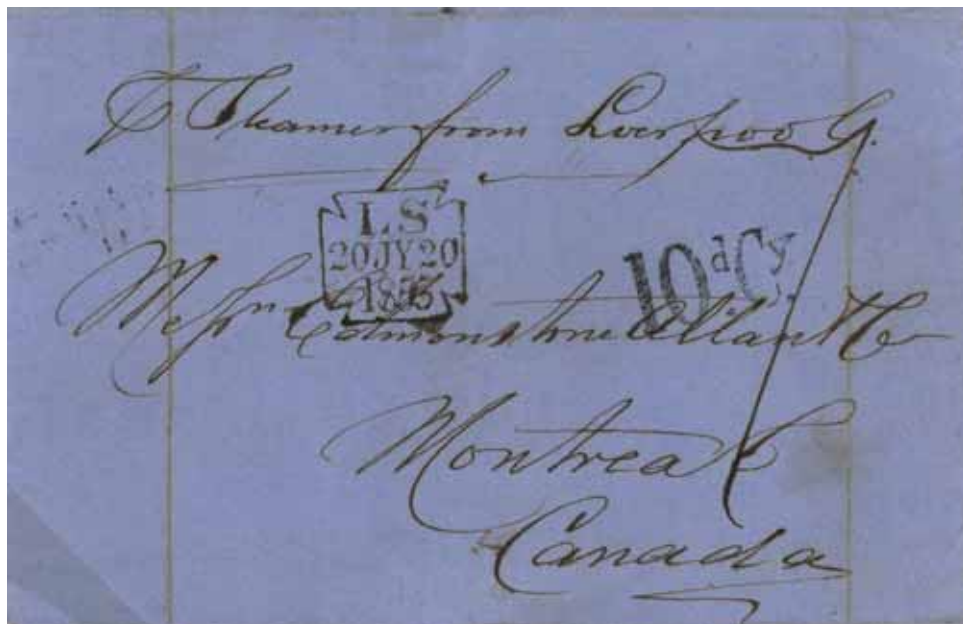 P Steamer from Liverpool
L S
20 JY 20
1855
10 d Cy.
Messrs Edmonstone Allan & Co
Montreal
Canada